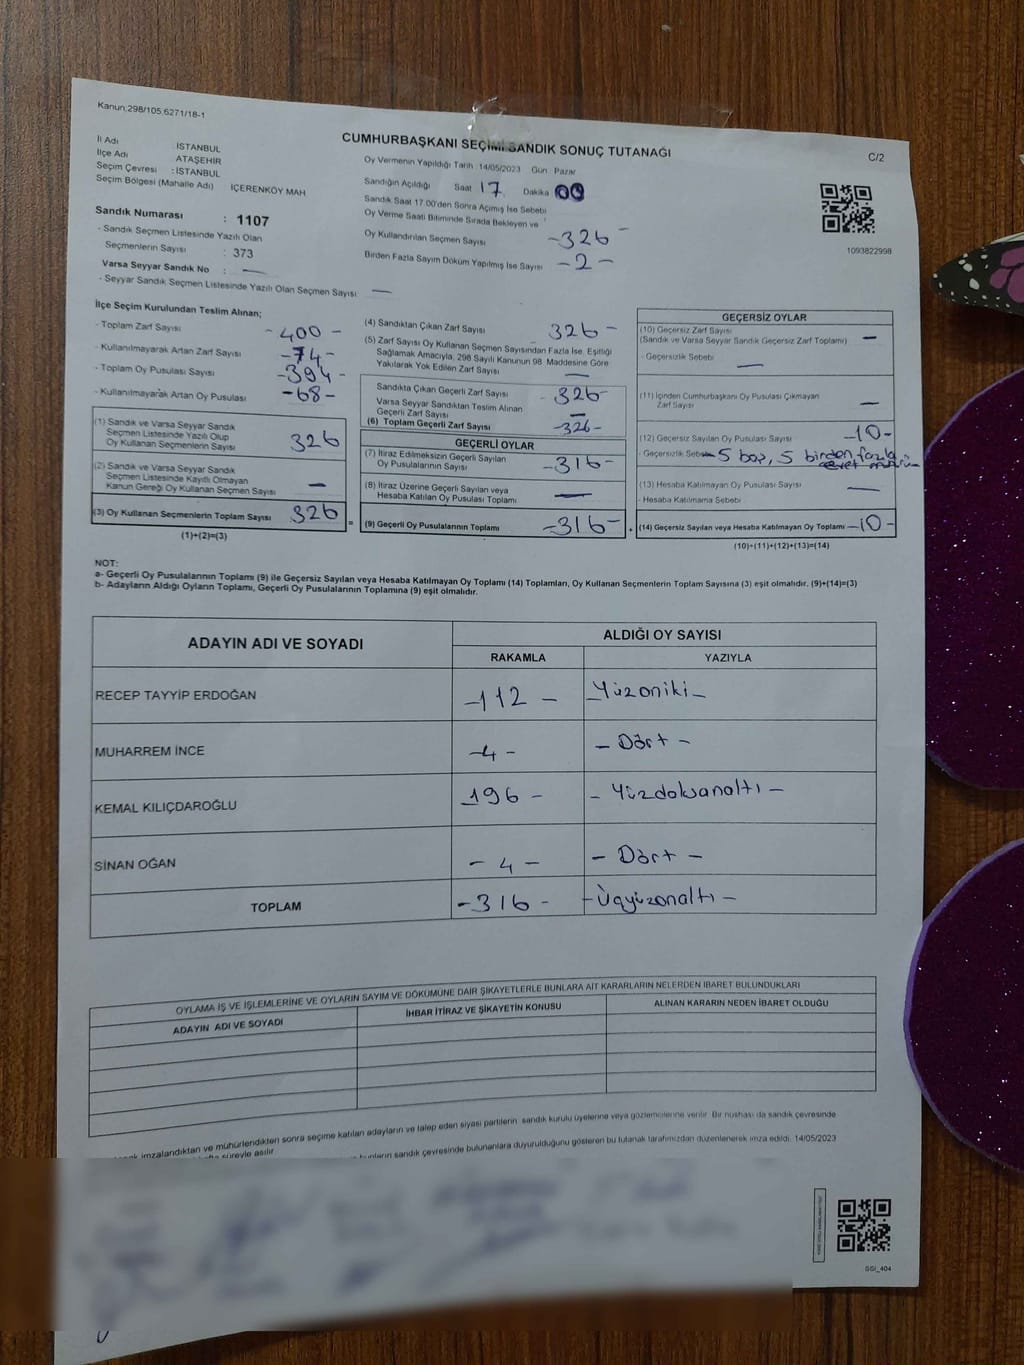 Kanun:298/105,6271/18-1
CUMHURBAŞKANI SEÇİMİ SANDIK SONUÇ TUTANAĞI
C/2
İl Adı : İSTANBUL
İlçe Adı ATAŞEHİR
Seçim Çevresi : İSTANBUL
Seçim Bölgesi (Mahalle Adı) İÇERENKÖY MAH
Sandık Numarası : 1107
- Sandık Seçmen Listesinde Yazılı Olan
Seçmenlerin Sayısı : 373
Varsa Seyyar Sandık No : —
- Seyyar Sandık Seçmen Listesinde Yazılı Olan Seçmen Sayısı: —
Oy Vermenin Yapıldığı Tarih :14/05/2023 Gün Pazar
Sandığın Açıldığı Saat 17 Dakika 00
Sandık Saat 17.00'den Sonra Açımış İse Sebebi
Oy Verme Saati Bitiminde Sırada Bekleyen ve
Oy Kullandırılan Seçmen Sayısı -326-
Birden Fazla Sayım Döküm Yapılmış İse Sayısı -2-
1093822998
İlçe Seçim Kurulundan Teslim Alınan;
- Toplam Zarf Sayısı -400-
- Kullanılmayarak Artan Zarf Sayısı -74-
- Toplam Oy Pusulası Sayısı -394-
- Kullanılmayarak Artan Oy Pusulası -68-
(1) Sandık ve Varsa Seyyar Sandık
Seçmen Listesinde Yazılı Olup
Oy Kullanan Seçmenlerin Sayısı 326
(2) Sandık ve Varsa Seyyar Sandık
Seçmen Listesinde Kayıtlı Olmayan
Kanun Gereği Oy Kullanan Seçmen Sayısı —
(3) Oy Kullanan Seçmenlerin Toplam Sayısı 326
(1)+(2)=(3)
=
(4) Sandıktan Çıkan Zarf Sayısı 326-
(5) Zarf Sayısı Oy Kullanan Seçmen Sayısından Fazla İse, Eşitliği
Sağlamak Amacıyla, 298 Sayılı Kanunun 98. Maddesine Göre
Yakılarak Yok Edilen Zarf Sayısı —
Sandıkta Çıkan Geçerli Zarf Sayısı -326-
Varsa Seyyar Sandıktan Teslim Alınan
Geçerli Zarf Sayısı —
(6) Toplam Geçerli Zarf Sayısı -326-
GEÇERLİ OYLAR
(7) İtiraz Edilmeksizin Geçerli Sayılan
Oy Pusulalarının Sayısı -316-
(8) İtiraz Üzerine Geçerli Sayılan veya
Hesaba Katılan Oy Pusulası Toplamı —
(9) Geçerli Oy Pusulalarının Toplamı -316-
GEÇERSİZ OYLAR
(10) Geçersiz Zarf Sayısı
(Sandık ve Varsa Seyyar Sandık Geçersiz Zarf Toplamı) —
- Geçersizlik Sebebi —
(11) İçinden Cumhurbaşkanı Oy Pusulası Çıkmayan
Zarf Sayısı —
(12) Geçersiz Sayılan Oy Pusulası Sayısı -10-
- Geçersizlik Sebebi 5 boş, 5 birden fazla
evet mührü
(13) Hesaba Katılmayan Oy Pusulası Sayısı —
- Hesaba Katılmama Sebebi
(14) Geçersiz Sayılan veya Hesaba Katılmayan Oy Toplamı -10-
(10)+(11)+(12)+(13)=(14)
NOT:
a- Geçerli Oy Pusulalarının Toplamı (9) ile Geçersiz Sayılan veya Hesaba Katılmayan Oy Toplamı (14) Toplamları, Oy Kullanan Seçmenlerin Toplam Sayısına (3) eşit olmalıdır. (9)+(14)=(3)
b- Adayların Aldığı Oyların Toplamı, Geçerli Oy Pusulalarının Toplamına (9) eşit olmalıdır.
ADAYIN ADI VE SOYADI ALDIĞI OY SAYISI
RAKAMLA YAZIYLA
RECEP TAYYİP ERDOĞAN -112- -Yüzoniki-
MUHARREM İNCE -4- -Dört-
KEMAL KILIÇDAROĞLU 196- -Yüzdoksanaltı-
SİNAN OĞAN -4- -Dört-
TOPLAM -316- -Üçyüzonaltı-
OYLAMA İŞ VE İŞLEMLERİNE VE OYLARIN SAYIM VE DÖKÜMÜNE DAİR ŞİKAYETLERLE BUNLARA AİT KARARLARIN NELERDEN İBARET BULUNDUKLARI
ADAYIN ADI VE SOYADI İHBAR İTİRAZ VE ŞİKAYETİN KONUSU ALINAN KARARIN NEDEN İBARET OLDUĞU
imzalandıktan ve mühürlendikten sonra seçime katılan adayların ve talep eden siyasi partilerin sandık kurulu üyelerine veya gözlemcilerine verilir. Bir nüshası da sandık çevresinde
süreyle asılır.
bunların sandık çevresinde bulunanlara duyurulduğunu gösteren bu tutanak tarafımızdan düzenlenerek imza edildi. 14/05/2023
SSI_404